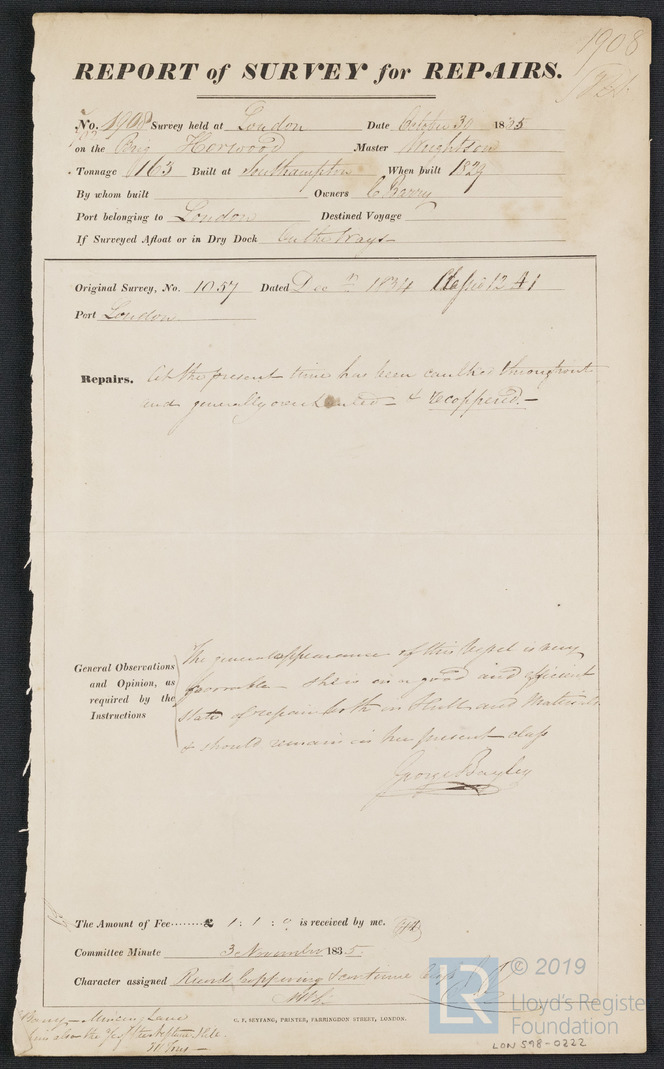 1908
REPORT of SURVEY for REPAIRS.
No. 1908 Survey held at London Date October 30 1835
on the Brig Horwood Master Wrightson
Tonnage 163 Built at Southampton When built 1829
By whom built Owners C. Barry
Port belonging to London Destined Voyage
If Surveyed Afloat or in Dry Dock On the Ways
Original Survey, No. 1057 Dated Dec 1834 Classed 12 A1
Port London
Repairs. At the present time has been caulked throughout
and generally & recoppered.
The general appearance of this Vessel is very
General Observations and Opinion, as required by the Instructions
favorable she is in a good and efficient
state of repair both in Hull and Materials
& should remain in her present class
George Bayley
The Amount of Fee ........ £ 1 : 1 : 0 is received by me.
Committee Minute 3 November 1835.
Character assigned Record Coppering & continue
C. F. SEYFANG, PRINTER, FARRINGDON STREET, LONDON.
Barry Mincing Lane
also the of the Neptune
LR © 2019
Lloyd's Register
Foundation
LON 598-0222